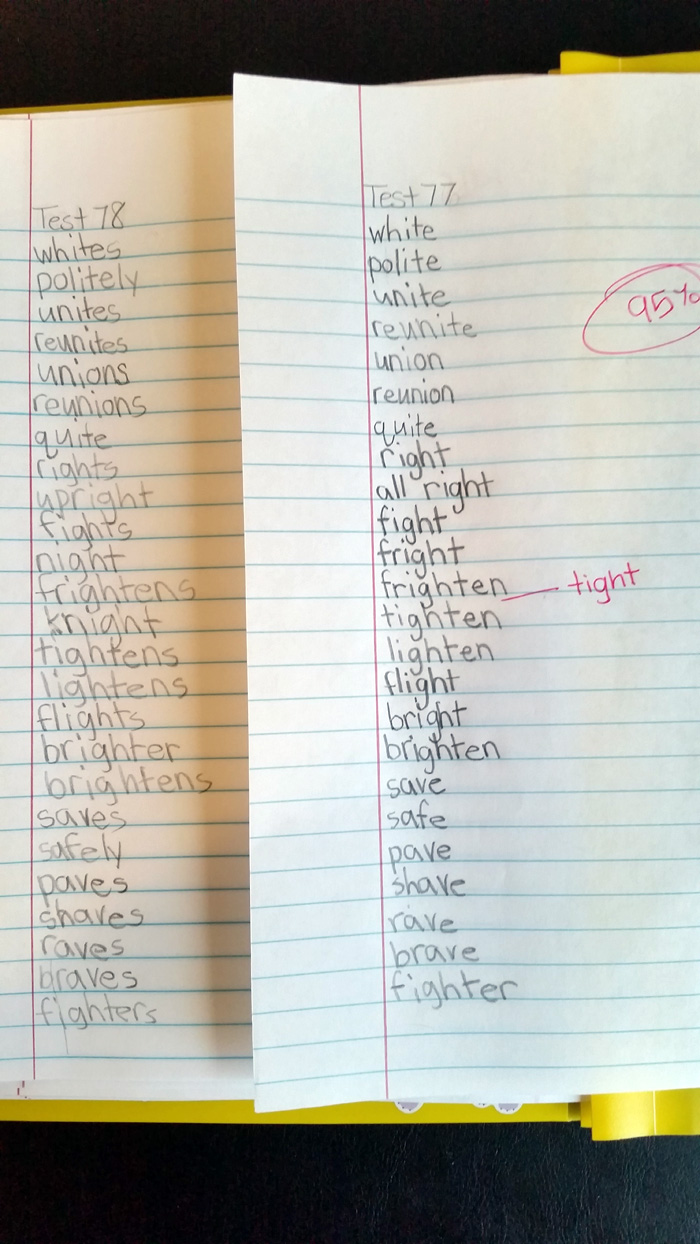 Test 78
whites
politely
unites
reunites
unions
reunions
quite
rights
upright
fights
night
frightens
knight
tightens
lightens
flights
brighter
brightens
saves
safely
paves
shaves
raves
braves
fighters
Test 77
white
polite
unite
reunite
union
reunion
quite
right
all right
fight
fright
frighten tight
tighten
lighten
flight
bright
brighten
save
safe
pave
shave
rave
brave
fighter
95%